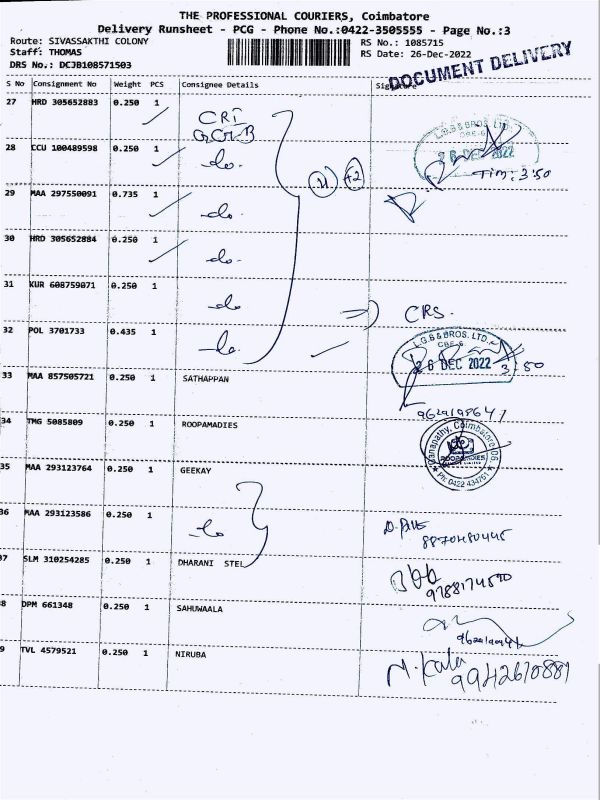 THE PROFESSIONAL COURIERS, Coimbatore
Delivery Runsheet - PCG - Phone No.:0422-3505555 - Page No.:3
Route: SIVASSAKTHI COLONY
RS No.: 1085715
Staff: THOMAS
RS Date: 26-Dec-2022
DRS No.: DCJB108571503
DOCUMENT DELIVERY
S No Consignment No Weight PCS Consignee Details Signature
27 HRD 305652883 0.250 1 CRI
L.G.B & BROS LTD.
CBE-6
28 CCU 100489598 0.250 1 do.
26 DEC 2022
Tim: 3:50
29 MAA 297550091 0.735 1 do.
30 HRD 305652884 0.250 1 do.
31 KUR 608759071 0.250 1 do
CRS.
32 POL 3701733 0.435 1 do.
L.G.B & BROS. LTD.
CBE-6.
26 DEC 2022 3:50
33 MAA 857505721 0.250 1 SATHAPPAN
9629198647
34 TMG 5085809 0.250 1 ROOPAMADIES
Ganapathy, Coimbatore 06
ROOPAMADIES
PH: 0422 434751
35 MAA 293123764 0.250 1 GEEKAY
36 MAA 293123586 0.250 1 do
8870480445
37 SLM 310254285 0.250 1 DHARANI STEL
8 DPM 661348 0.250 1 SAHUWAALA
9 TVL 4579521 0.250 1 NIRUBA
M. Kala
9942670881